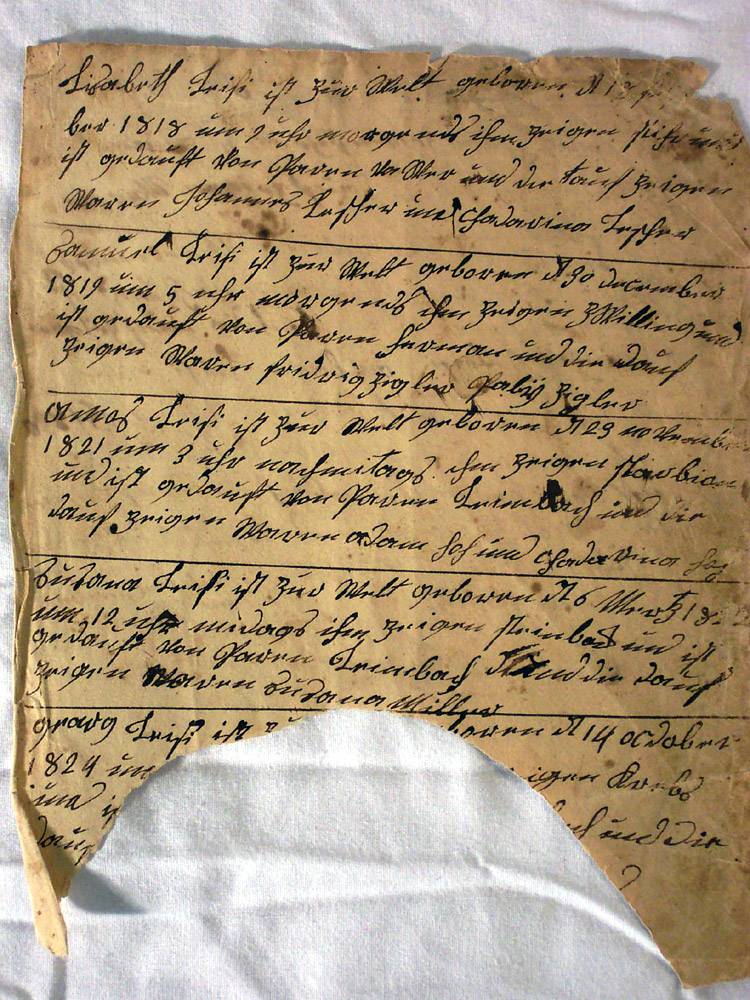 Lisabeth Leisi ist zur Welt geboren d 13
ber 1818 um 9 uhr morgends ihm zeigen fische und
ist gedauft von Paren und die tauf zeigen
Waren Johannes Lescher und Chadarina Lescher
Samuel Leisi ist zur Welt geboren d 30 december
1819 um 5 uhr morgends ihm zeigen zwilling und
ist gedauft von Paren Herman und die dauf
zeigen Waren fridrig zigler zigler
Amos Leisi ist zur Welt geboren d 29 november
1821 um 3 uhr nachmitags ihm zeigen skorbion
und ist gedauft von Paren Leimbach und die
dauf zeigen Waren adam und Chadarina
Susana Leisi ist zur Welt geboren d 6 Mertz 18
um 12 uhr midags ihm zeigen steinbock und ist
gedauft von Paren Leimbach und die dauf
zeigen Waren Susana Miller
georg Leisi ist zu boren d 14 october
1824 um eigen Krebs
und i ch und die
dauf